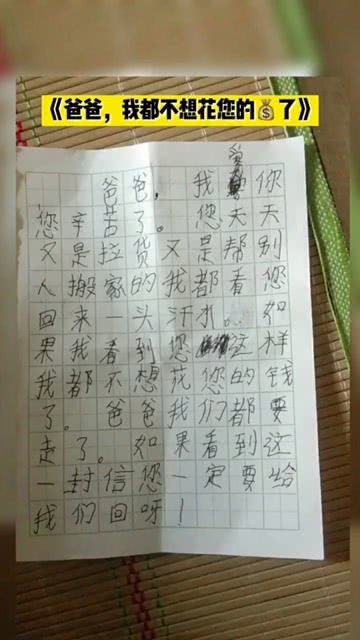 《爸爸，我都不想花您的💰了》
爸爸，我爱你
您辛苦了。您天天
又是拉货又是帮别
人搬家的我都看您
回来一头汗水。如
果我看到您这样
我都不想花您的钱
了。爸爸我们都要
走了。如果看到这
一封信您一定要给
我们回呀！